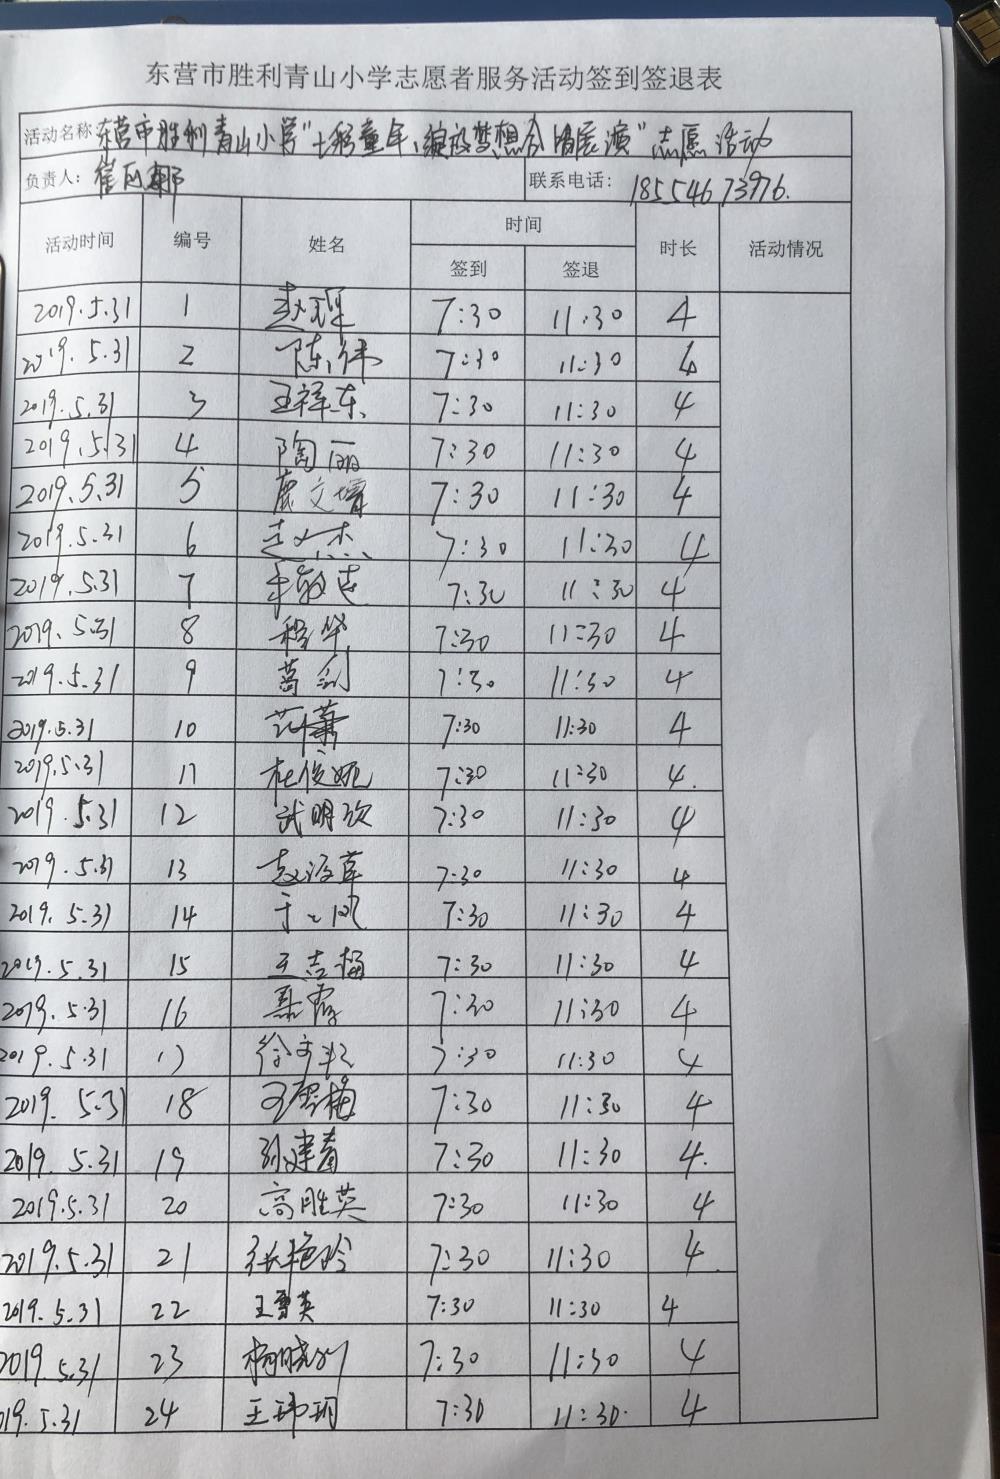 东营市胜利青山小学志愿者服务活动签到签退表
活动名称 东营市胜利青山小学"七彩童年、绽放梦想合唱展演"志愿活动
负责人： 崔 联系电话： 18554673976.
活动时间 编号 姓名 时间 时长 活动情况
签到 签退
2019.5.31 1 赵理 7:30 11:30 4
2019.5.31 2 陈伟 7:30 11:30 4
2019.5.31 3 王祥东 7:30 11:30 4
2019.5.31 4 陶丽 7:30 11:30 4
2019.5.31 5 7:30 11:30 4
2019.5.31 6 7:30 11:30 4
2019.5.31 7 7:30 11:30 4
2019.5.31 8 程华 7:30 11:30 4
2019.5.31 9 葛利 7:30 11:30 4
2019.5.31 10 7:30 11:30 4
2019.5.31 11 杜俊妮 7:30 11:30 4.
2019.5.31 12 武明欣 7:30 11:30 4
2019.5.31 13 7:30 11:30 4
2019.5.31 14 7:30 11:30 4
2019.5.31 15 王吉梅 7:30 11:30 4
2019.5.31 16 聂霞 7:30 11:30 4
2019.5.31 17 7:30 11:30 4
2019.5.31 18 7:30 11:30 4
2019.5.31 19 孙建青 7:30 11:30 4.
2019.5.31 20 高胜英 7:30 11:30 4
2019.5.31 21 张艳玲 7:30 11:30 4
2019.5.31 22 王雪英 7:30 11:30 4
2019.5.31 23 杨晓 7:30 11:30 4
019.5.31 24 王玮玥 7:30 11:30. 4